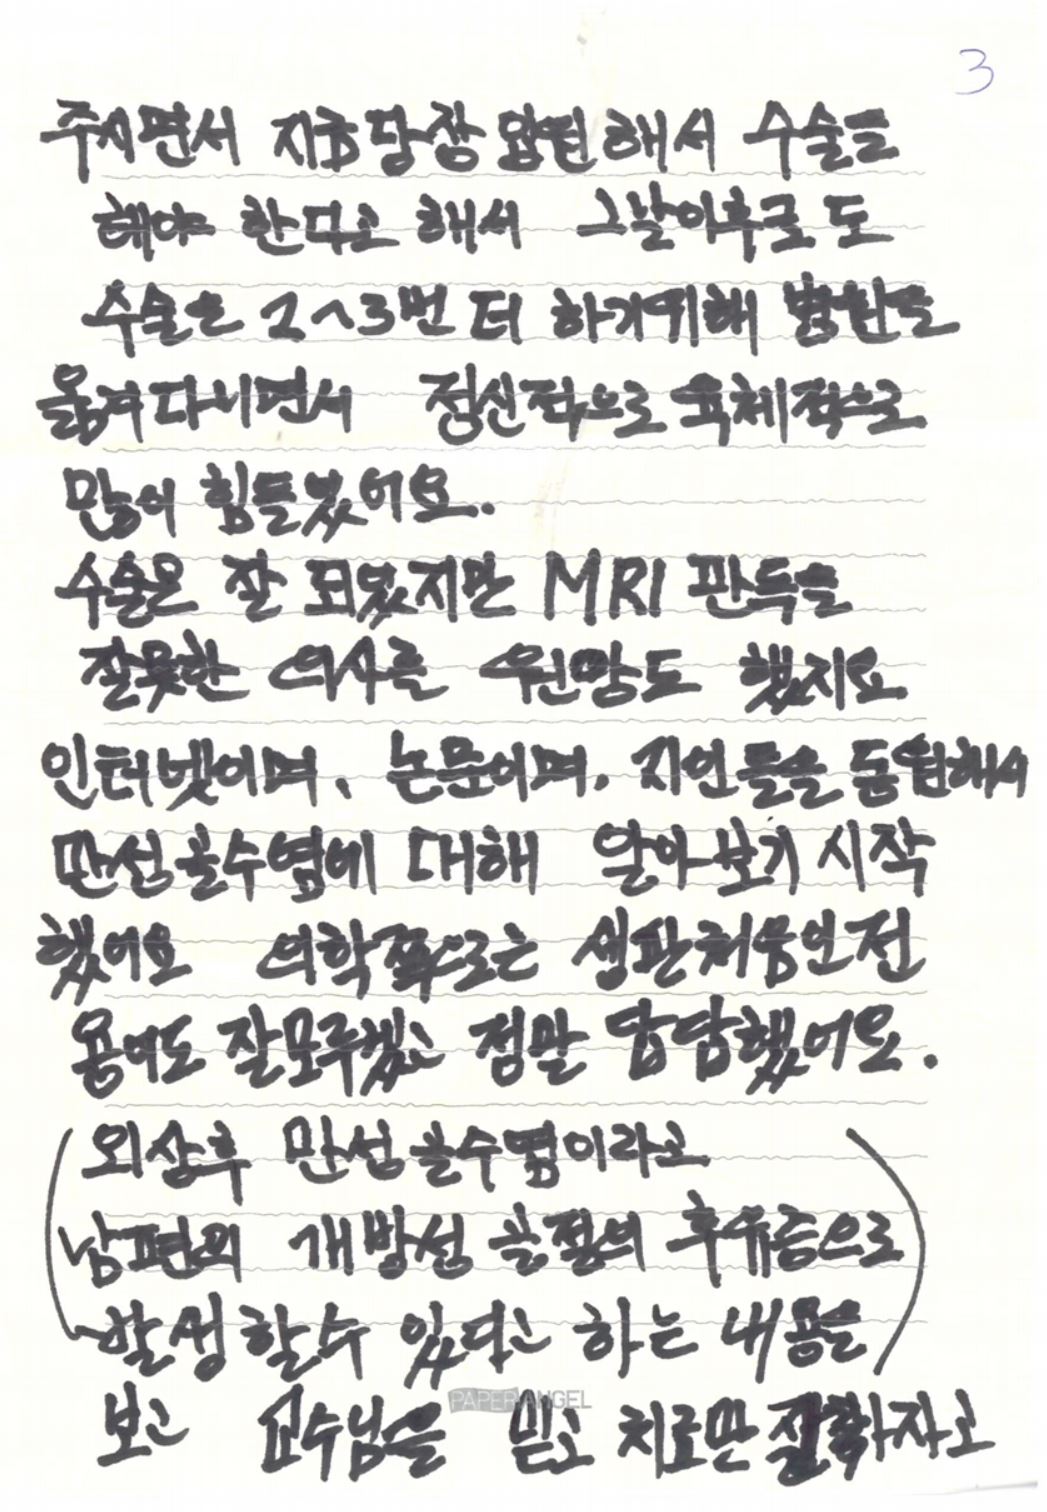 3
주시면서 지금 당장 입원해서 수술을
해야 한다고 해서 그날이후로도
수술은 2~3번 더 하기위해 병원을
옮겨다니면서 정신적으로 육체적으로
많이 힘들었어요.
수술은 잘 되었지만 MRI 판독을
잘못한 의사를 원망도 했지요
인터넷이며, 논문이며, 지인들을 동원해서
만성골수염에 대해 알아보기 시작
했어요 의학쪽으로는 생판처음인전
용어도 잘모루겠고 정말 답답했어요.
(외상후 만성골수염이라고
남편의 개방성 골절의 후유증으로
발생할수 있다고 하는 내용을)
보고 교수님을 믿고 치료만 잘하자고
PAPER ANGEL